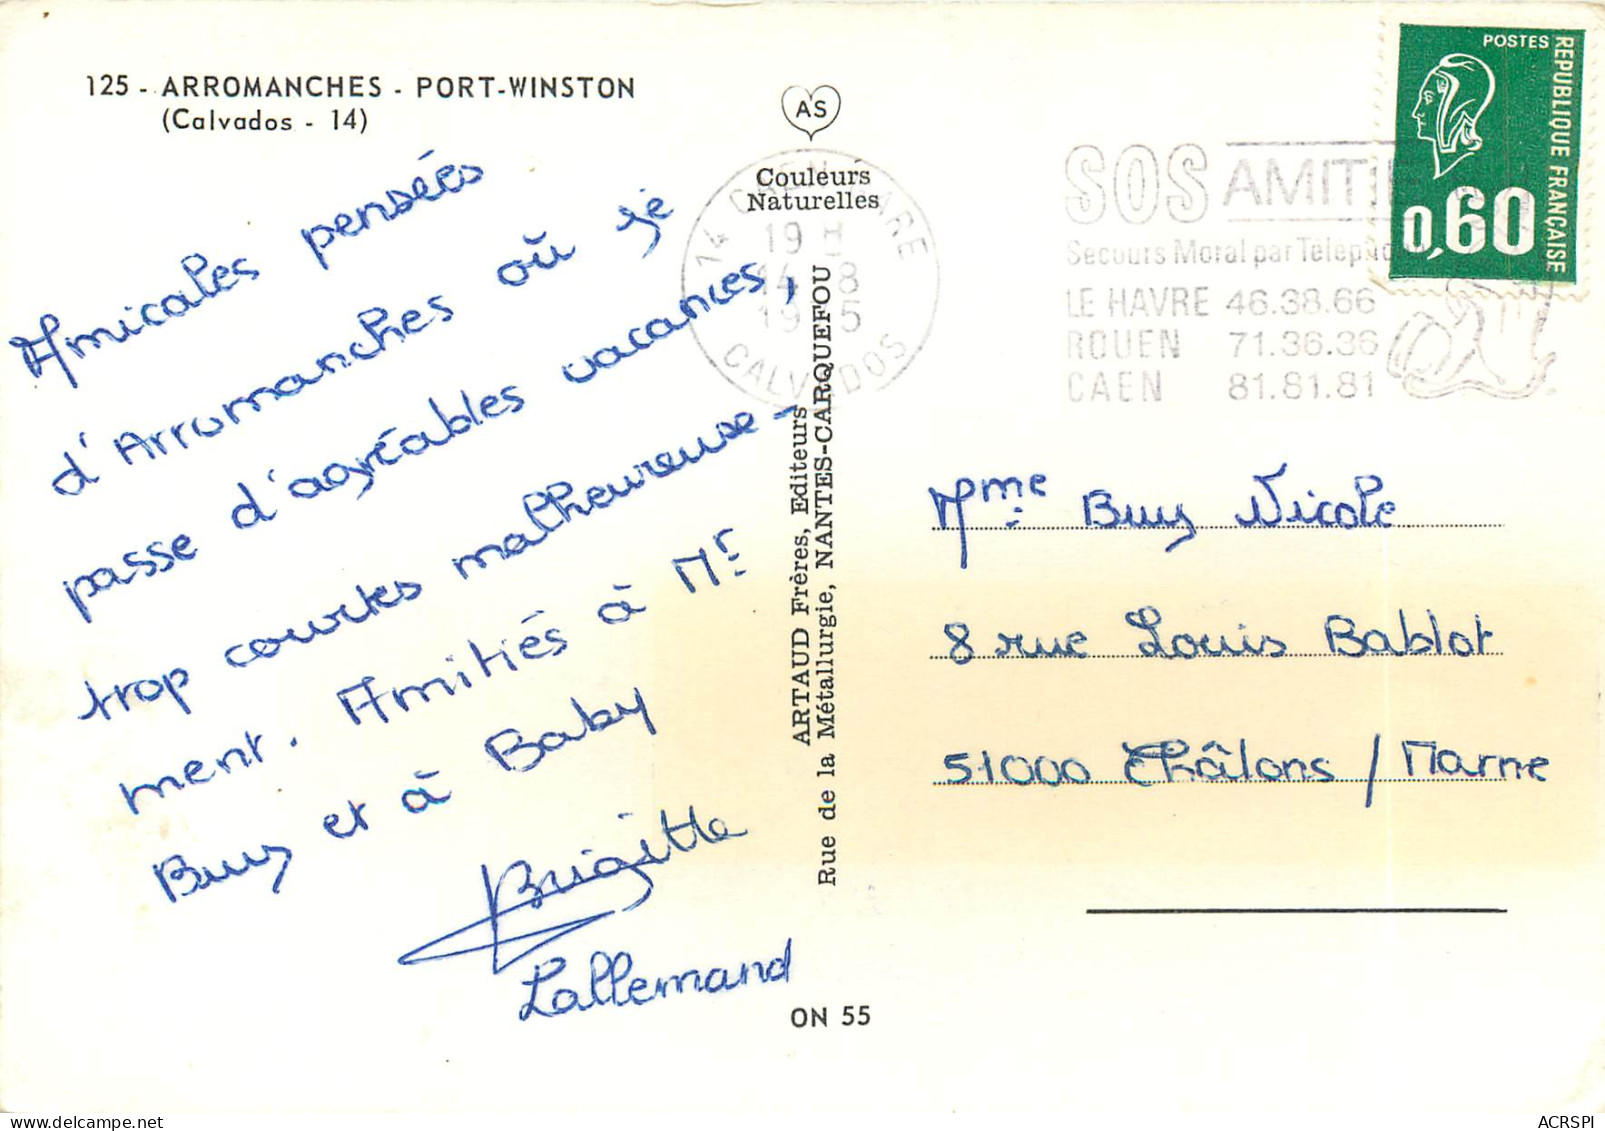 125 - ARROMANCHES - PORT-WINSTON
(Calvados - 14)
Amicales pensées
d'Arromanches où je
passe d'agréables vacances,
trop courtes malheureuse-
ment. Amitiés à Mr
Buy et à Baby
Brigitte
Lallemand
AS
Couleurs
Naturelles
ARTAUD Frères, Editeurs
Rue de la Métallurgie, NANTES-CARQUEFOU
ON 55
14 CAEN GARE
19 H
14 - 8
CALVADOS
SOS AMITIE
Secours Moral par
LE HAVRE 46.38.66
ROUEN 71.36.36
CAEN 81.81.81
POSTES
REPUBLIQUE FRANÇAISE
0,60
Mme Buy Nicole
8 rue Louis Bablot
51000 Châlons / Marne
ACRSPI